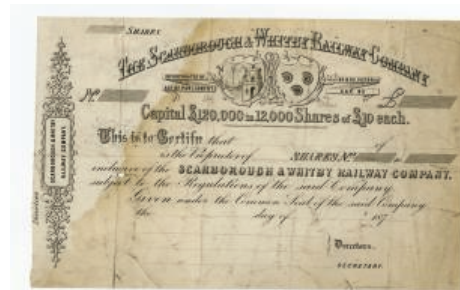 SHARES
THE SCARBOROUGH & WHITBY RAILWAY COMPANY
No. £
Capital £120,000 in 12,000 Shares of £10 each.
This is to Certify that of
is the Proprietor of SHARES, Nos. to
inclusive of the SCARBOROUGH & WHITBY RAILWAY COMPANY,
subject to the Regulations of the said Company.
Given under the Common Seal of the said Company
the day of 187
Directors.
SECRETARY.
SCARBOROUGH & WHITBY
RAILWAY COMPANY.